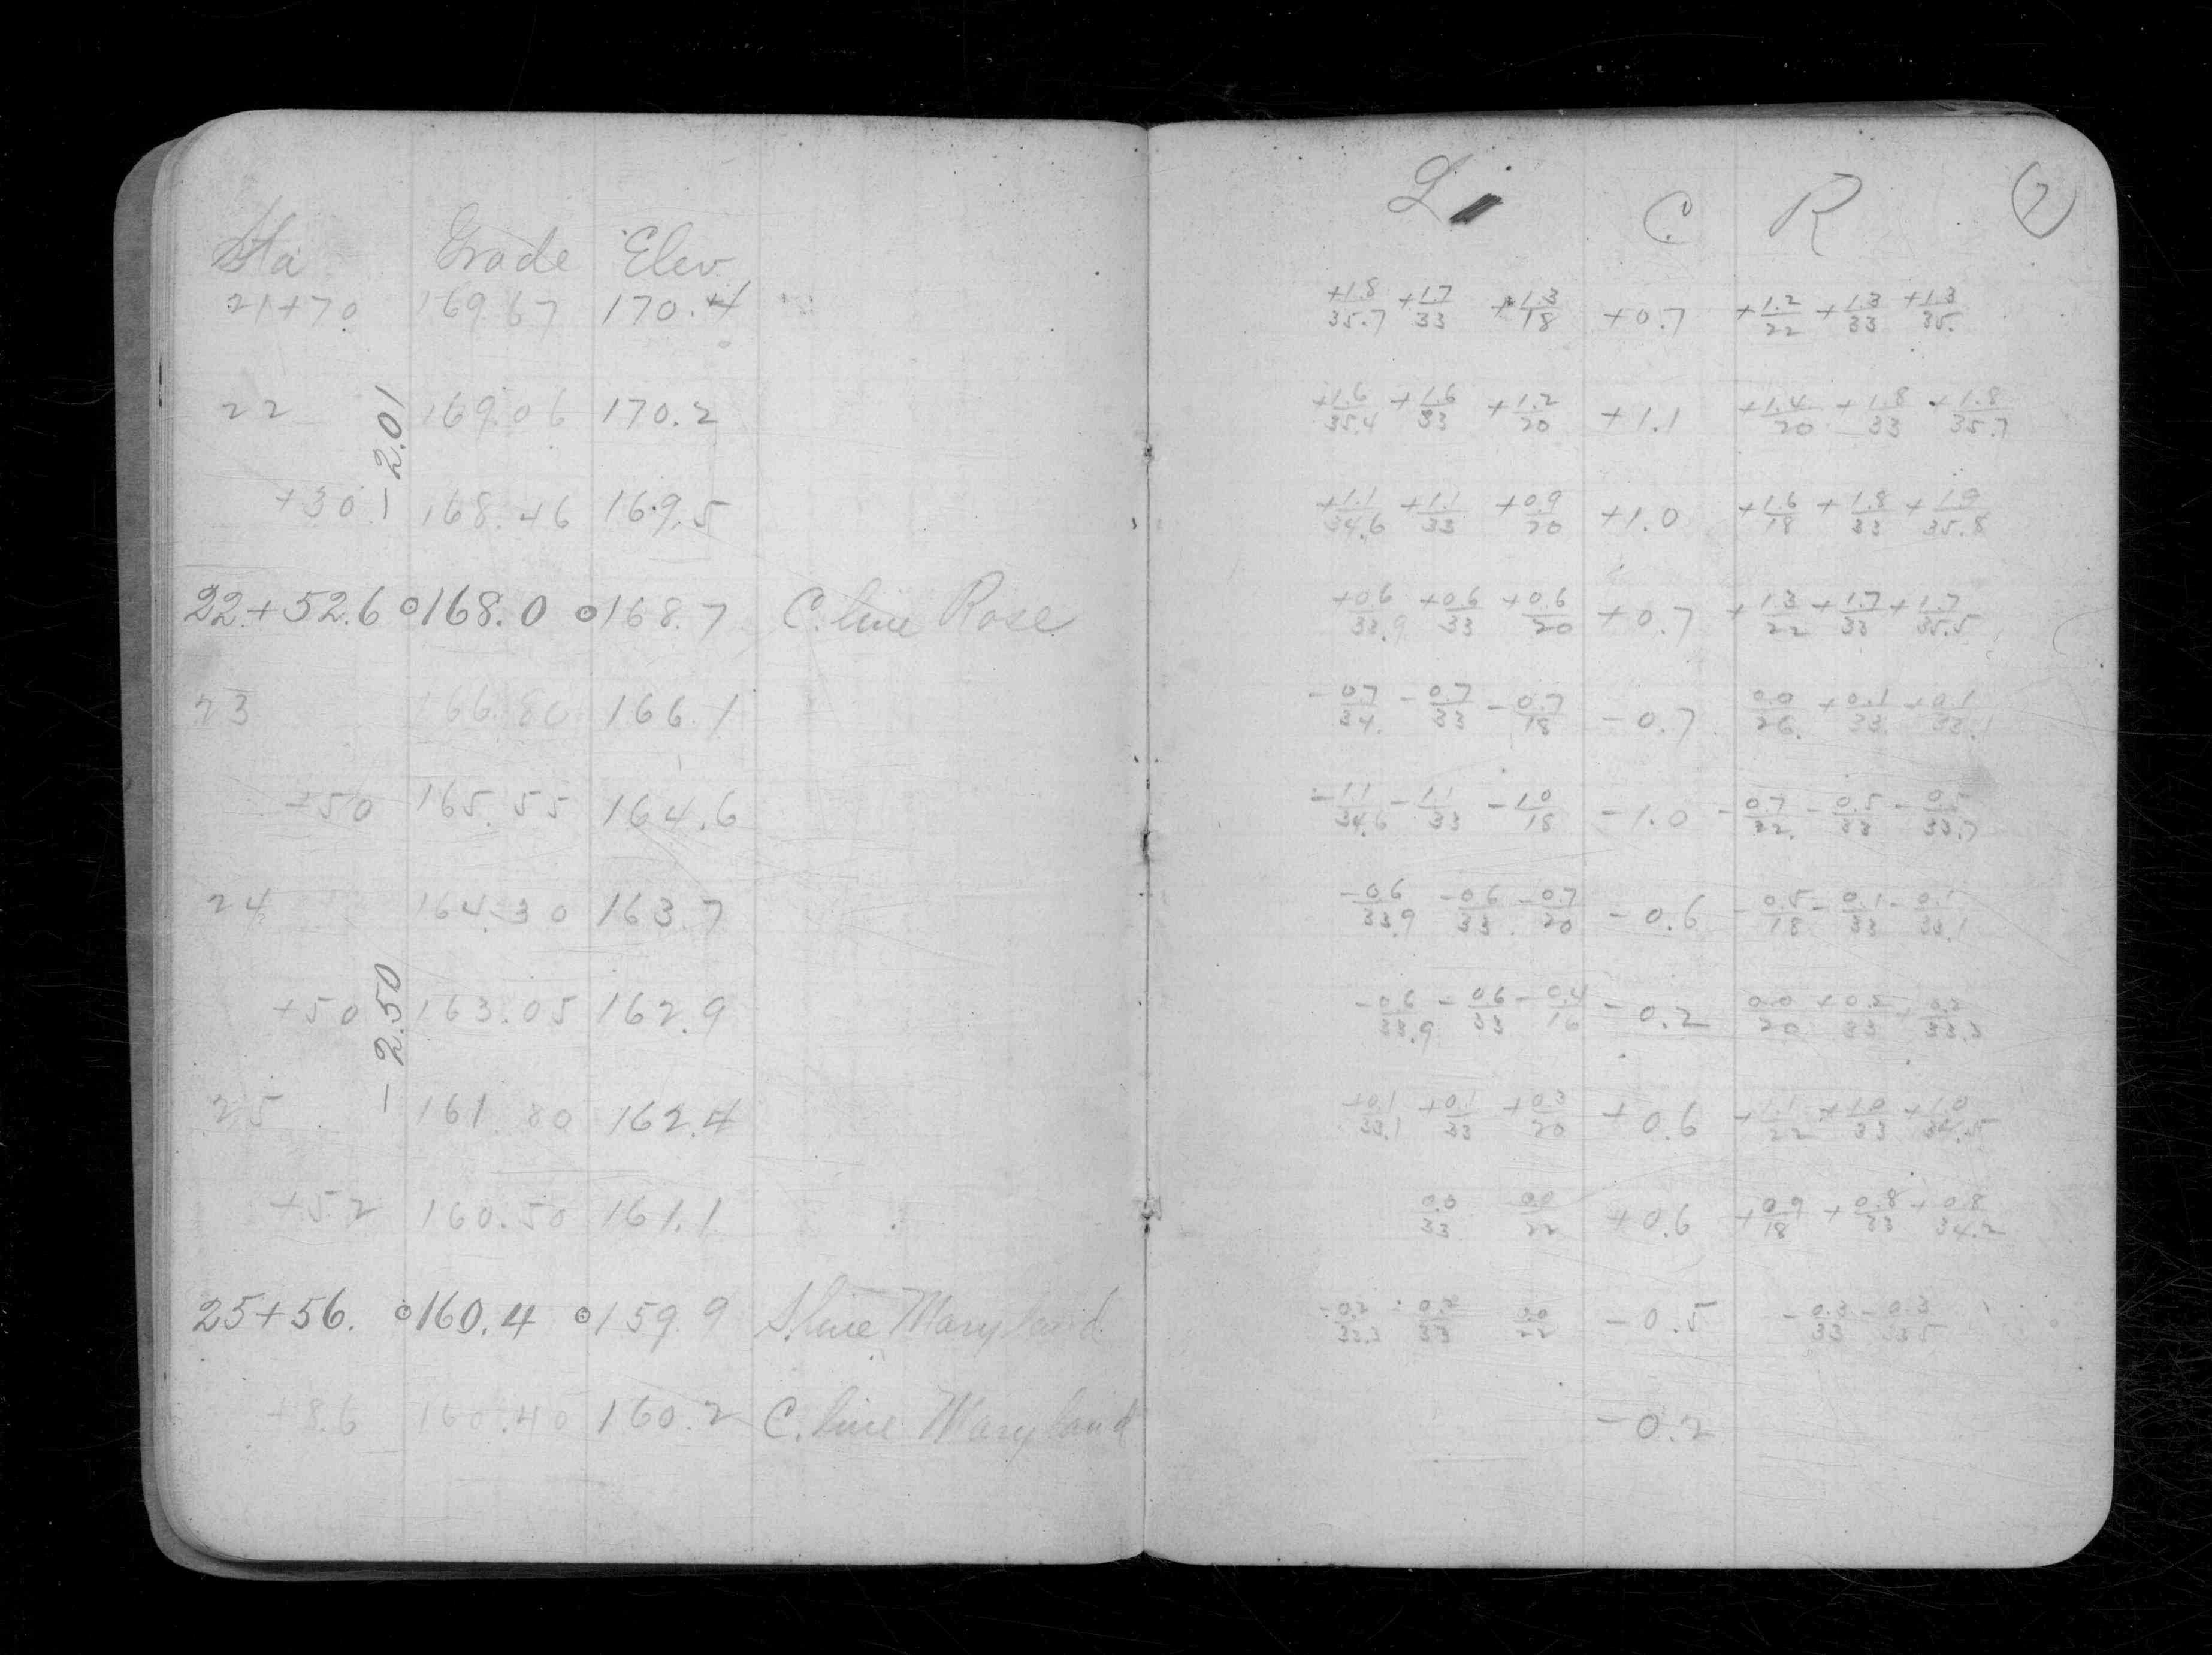 Sta Grade Elev
21+70 169.67 170.4
22 169.06 170.2
- 2.01
+30 168.46 169.5
22+52.6 168.0 168.7 C. line Rose
23 166.80 166.1
+50 165.55 164.6
24 164.30 163.7
+50 163.05 162.9
- 2.50
25 161.80 162.4
+52 160.50 161.1
25+56. 160.4 159.9 S. line Maryland
+86 160.40 160.2 C. line Maryland
L C R 2
+1.8/35.7 +1.7/33 +1.3/18 +0.7 +1.2/22 +1.3/33 +1.3/35.
+1.6/35.4 +1.6/33 +1.2/20 +1.1 +1.4/20 +1.8/33 +1.8/35.7
+1.1/34.6 +1.1/33 +0.9/20 +1.0 +1.6/18 +1.8/33 +1.9/35.8
+0.6/33.9 +0.6/33 +0.6/20 +0.7 +1.3/22 +1.7/33 +1.7/35.5
-0.7/34. -0.7/33 -0.7/18 -0.7 0.0/26. +0.1/33 +0.1/33.1
-1.1/34.6 -1.1/33 -1.0/18 -1.0 -0.7/22. -0.5/33 -0.5/33.7
-0.6/33.9 -0.6/33 -0.7/20 -0.6 -0.5/18 -0.1/33 -0.1/33.1
-0.6/33.9 -0.6/33 -0.4/16 -0.2 0.0/20 +0.2/33 +0.2/33.3
+0.1/33.1 +0.1/33 +0.3/20 +0.6 +1.1/22 +1.0/33 +1.0/34.5
0.0/33 0.0/22 +0.6 +0.9/18 +0.8/33 +0.8/34.2
-0.2/33.3 -0.2/33 0.0/22 -0.5 -0.3/33 -0.3/33.5
-0.2